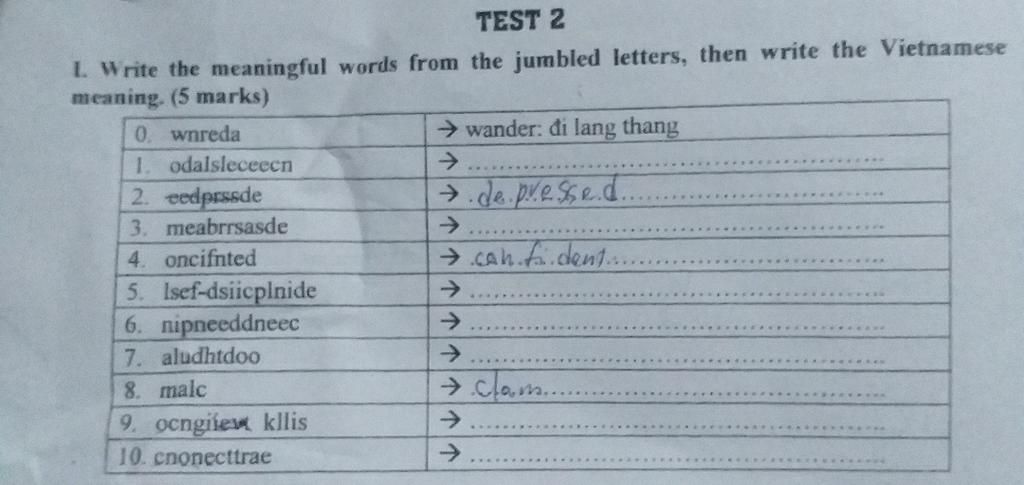 TEST 2
I. Write the meaningful words from the jumbled letters, then write the Vietnamese
meaning. (5 marks)
0. wnreda → wander: đi lang thang
1. odalsleceecn → ....................
2. eedprssde → depressed
3. meabrrsasde → ....................
4. oncifnted → confident
5. lsef-dsiicplnide → ....................
6. nipneeddneec → ....................
7. aludhtdoo → ....................
8. malc → clam
9. kllis → ....................
10. cnonecttrae → ....................